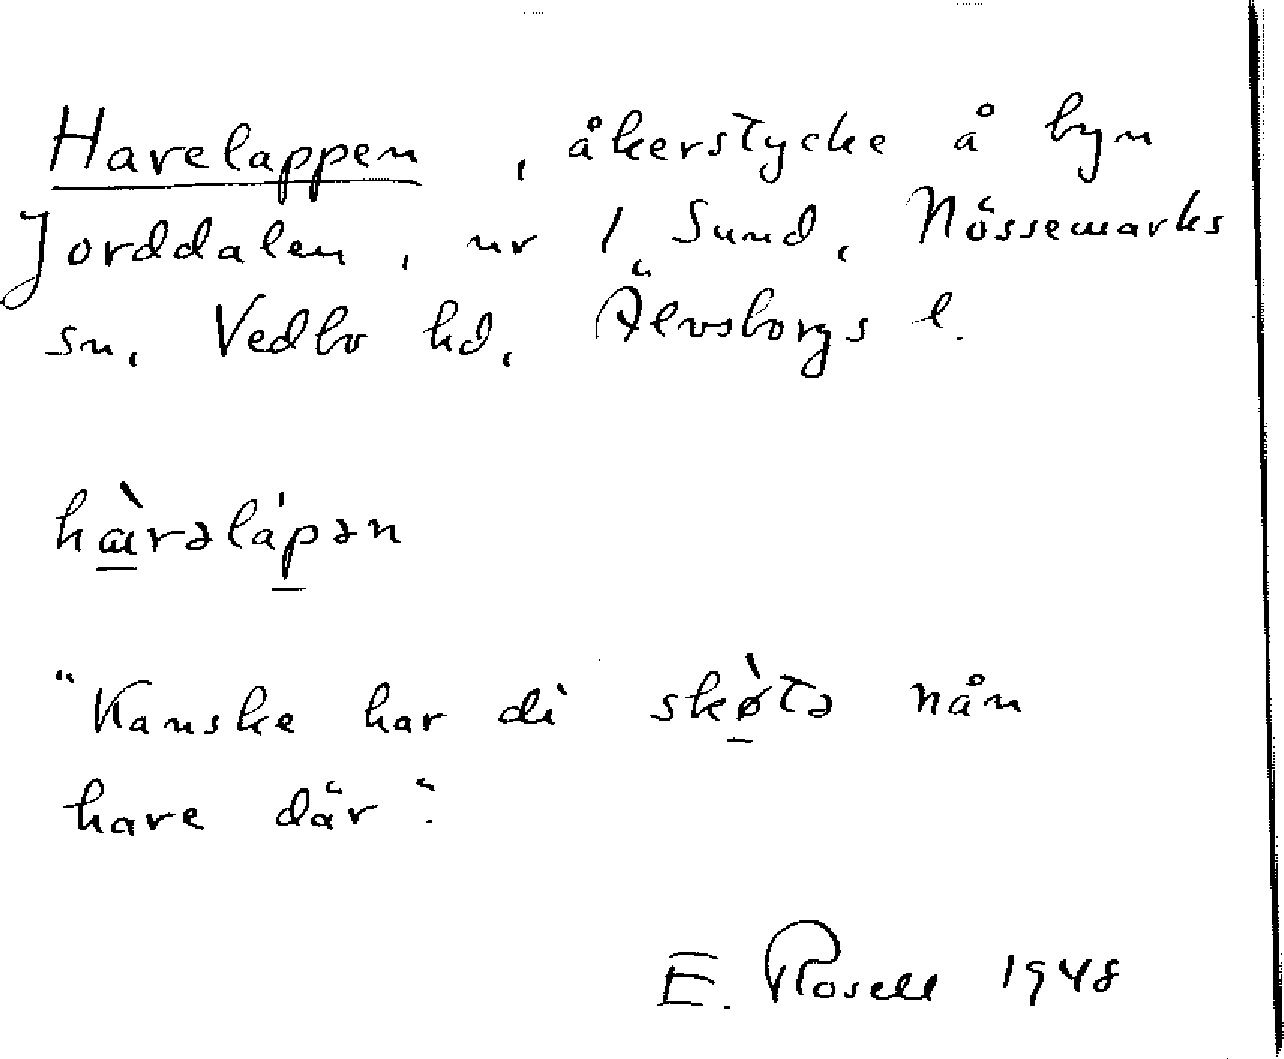 Harelappen, åkerstycke å byn
Jorddalen, nr 1 Sund, Nössemarks
sn, Vedbo hd, Älvsborgs l.
hàrəlápən
"Kanske har di skø̀tə nån
hare där".
E. Rosell 1948